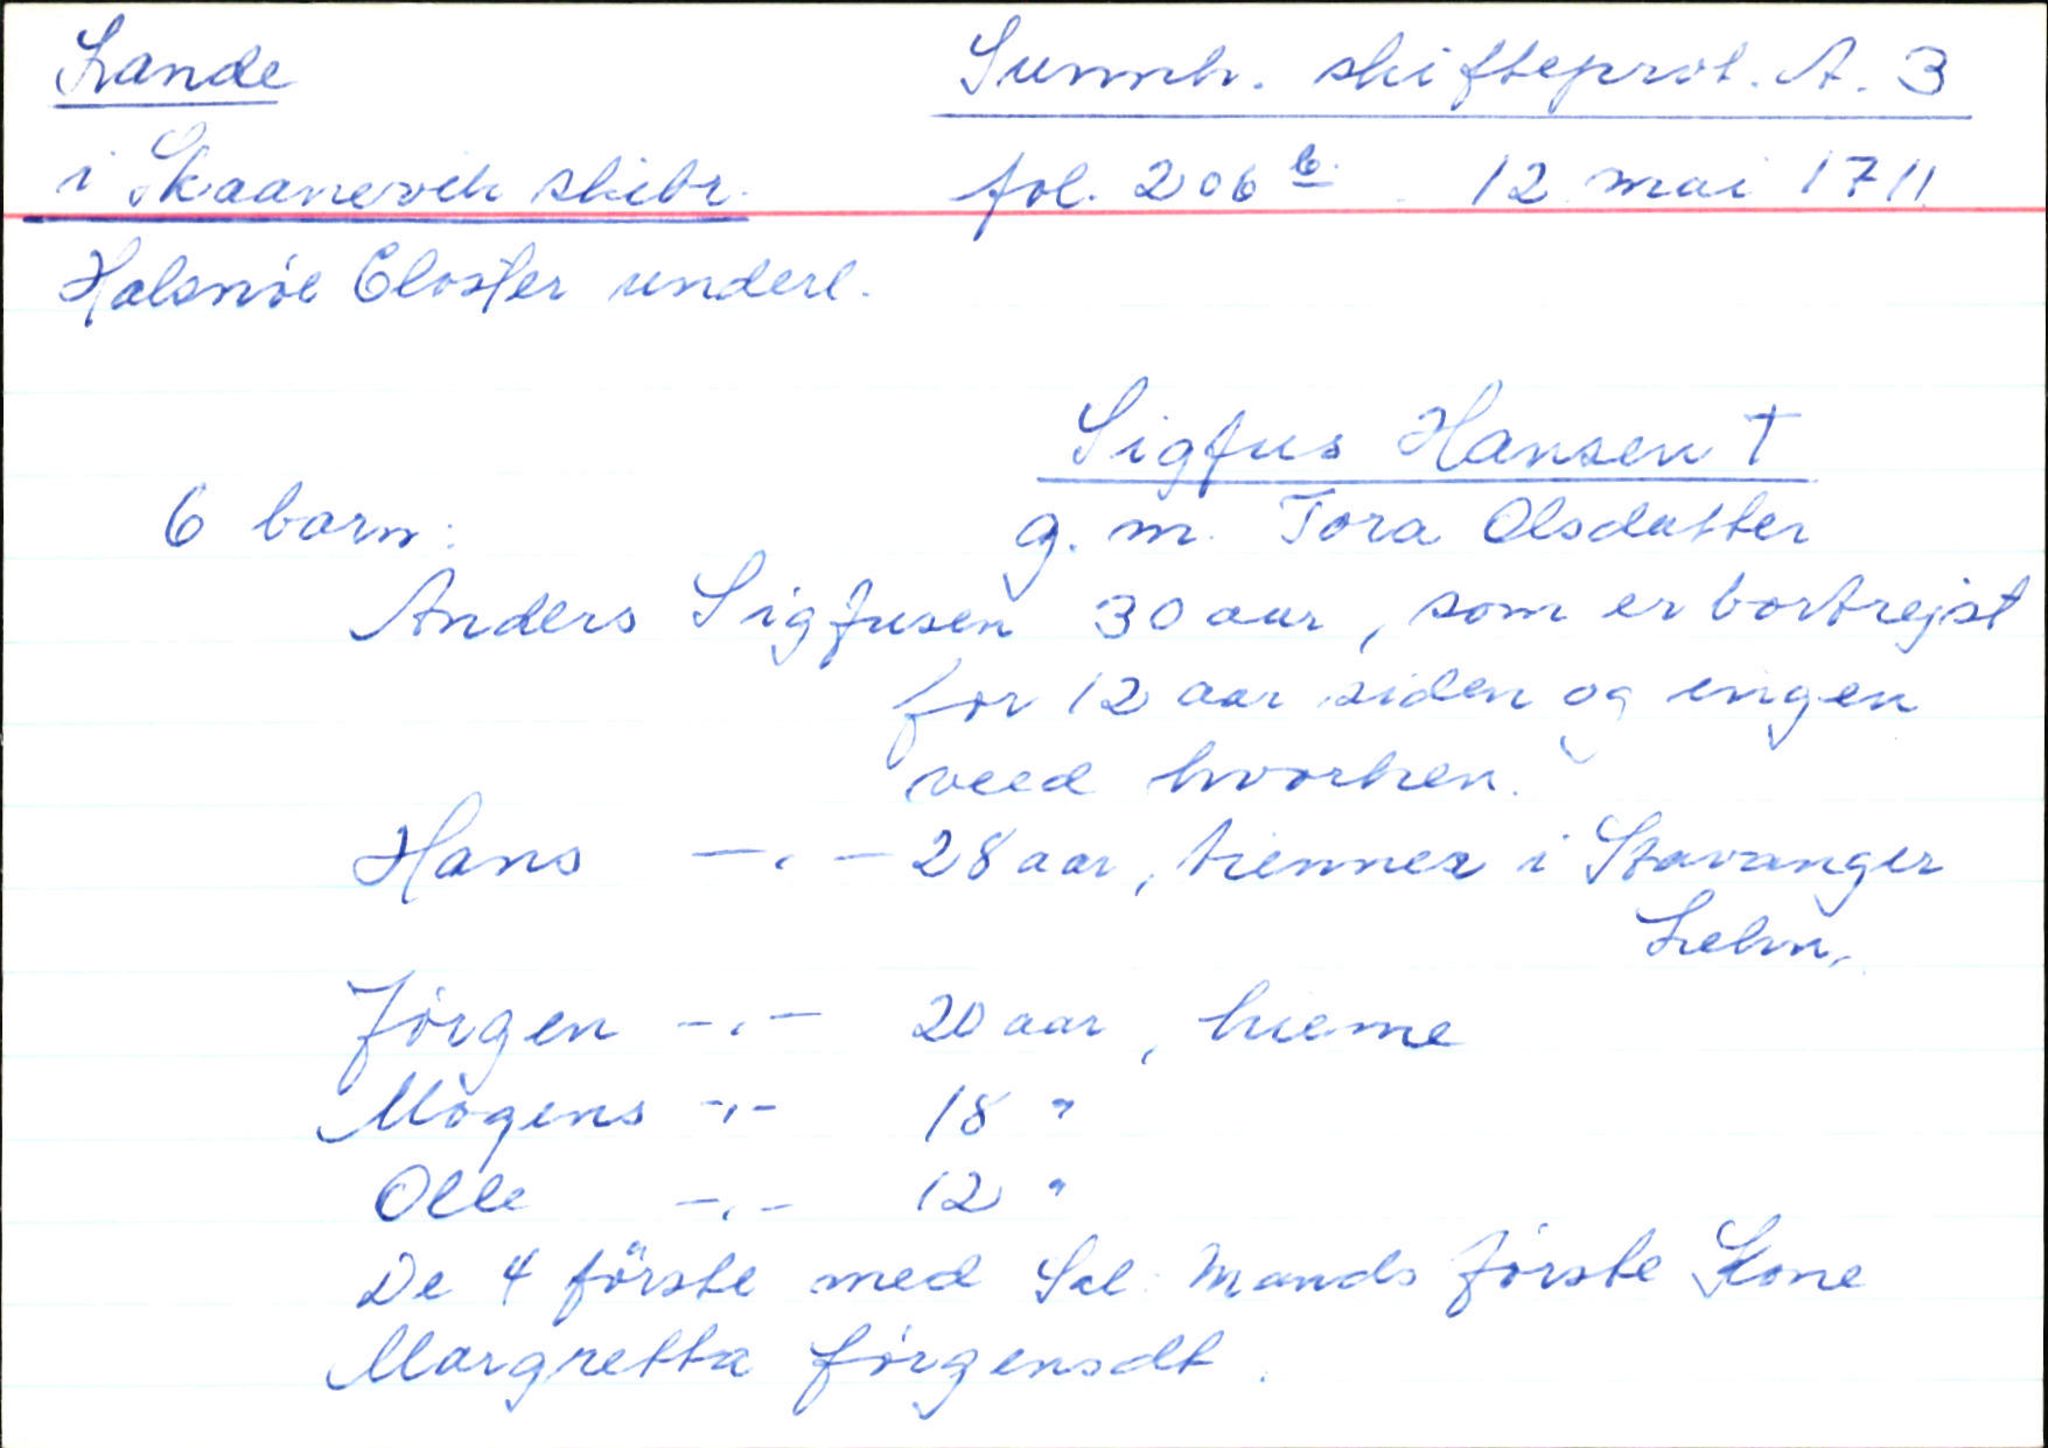 Lande Sunnh. skifteprot. A. 3
i Skaanevik skibr. fol. 206 b. 12. mai 1711
Halsnöe Closter underl.
Sigfus Hansen †
6 barn: g. m. Tora Olsdatter
Anders Sigfusen 30 aar, som er bortrejst
for 12 aar siden og ingen
veed hvorhen.
Hans —.— 28 aar, tienner i Stavanger
Lehn.
Jörgen —.— 20 aar, hieme
Mogens -.- 18 "
Olle -.- 12 "
De 4 förste med Sal: Mands förste Kone
Margretta Jörgensdt.